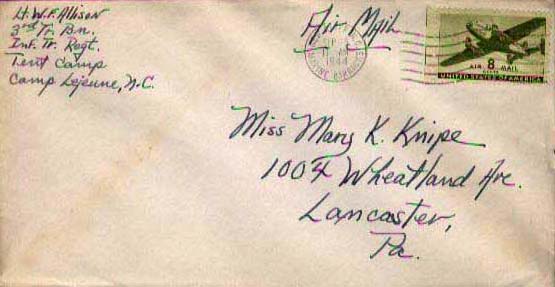 Lt. W.F. Allison
3rd Tr. Bn.
Inf. Tr. Regt.
Tent Camp
Camp Lejeune, N.C.
Air Mail
1944
AIR 8 MAIL
CENTS
UNITED STATES OF AMERICA
Miss Mary K. Knipe
1004 Wheatland Ave.
Lancaster,
Pa.